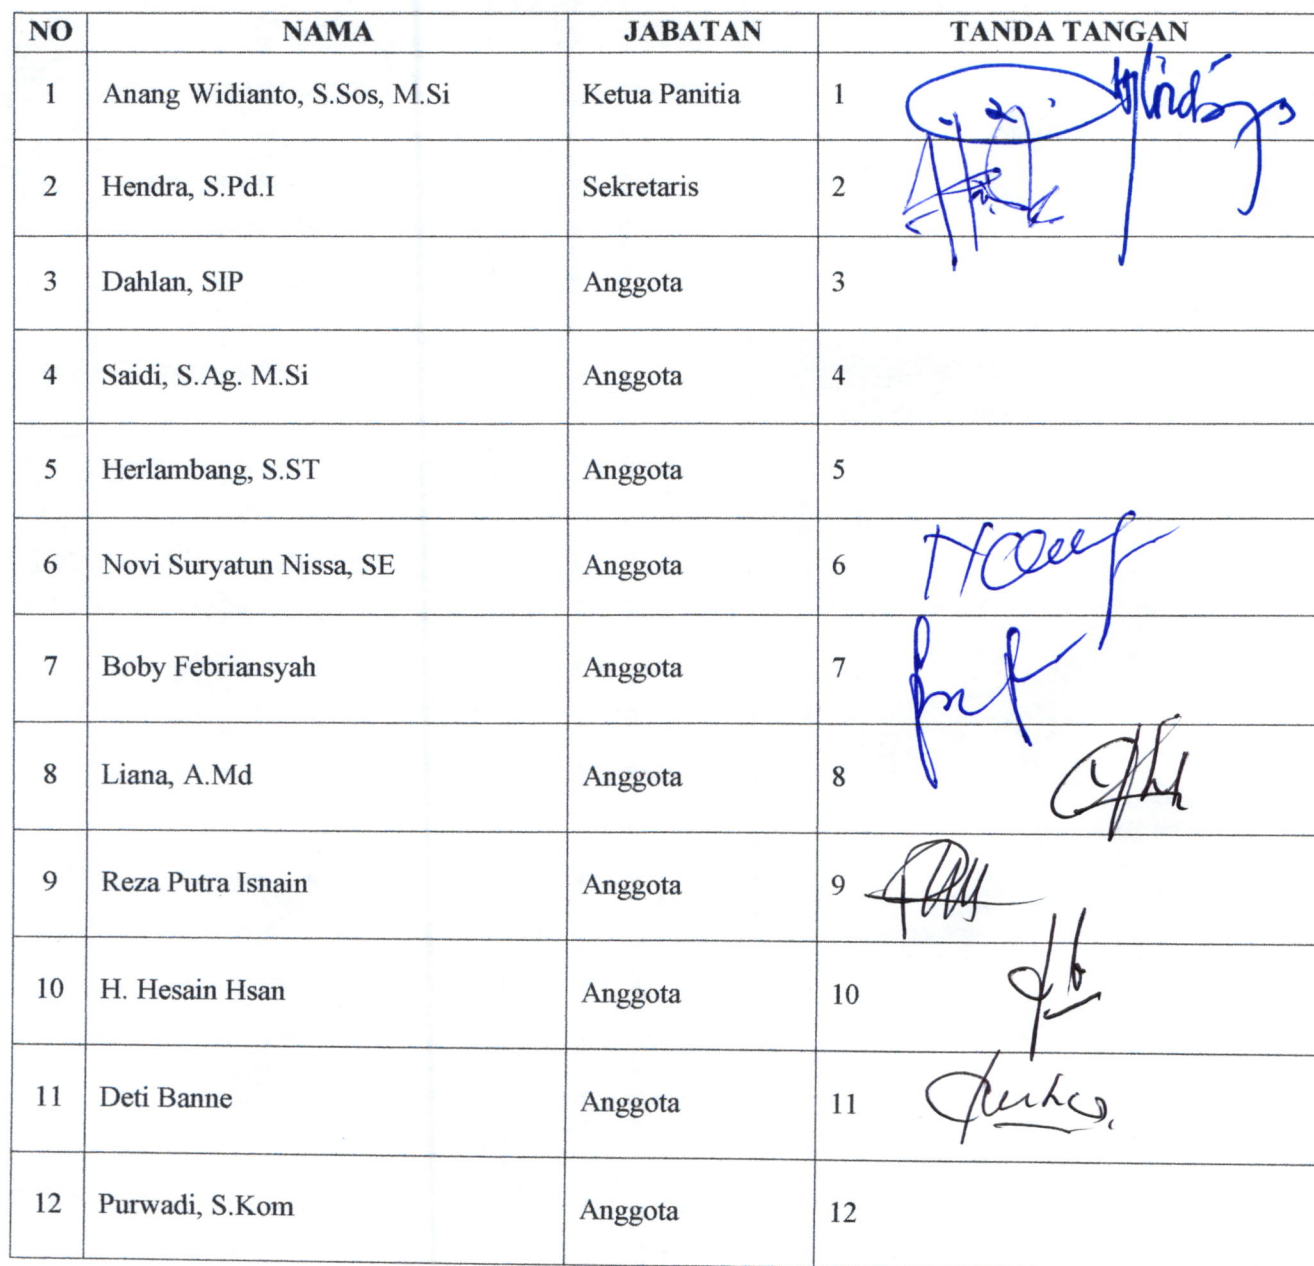 NO NAMA JABATAN TANDA TANGAN
1 Anang Widianto, S.Sos, M.Si Ketua Panitia 1
2 Hendra, S.Pd.I Sekretaris 2
3 Dahlan, SIP Anggota 3
4 Saidi, S.Ag. M.Si Anggota 4
5 Herlambang, S.ST Anggota 5
6 Novi Suryatun Nissa, SE Anggota 6
7 Boby Febriansyah Anggota 7
8 Liana, A.Md Anggota 8
9 Reza Putra Isnain Anggota 9
10 H. Hesain Hsan Anggota 10
11 Deti Banne Anggota 11
12 Purwadi, S.Kom Anggota 12